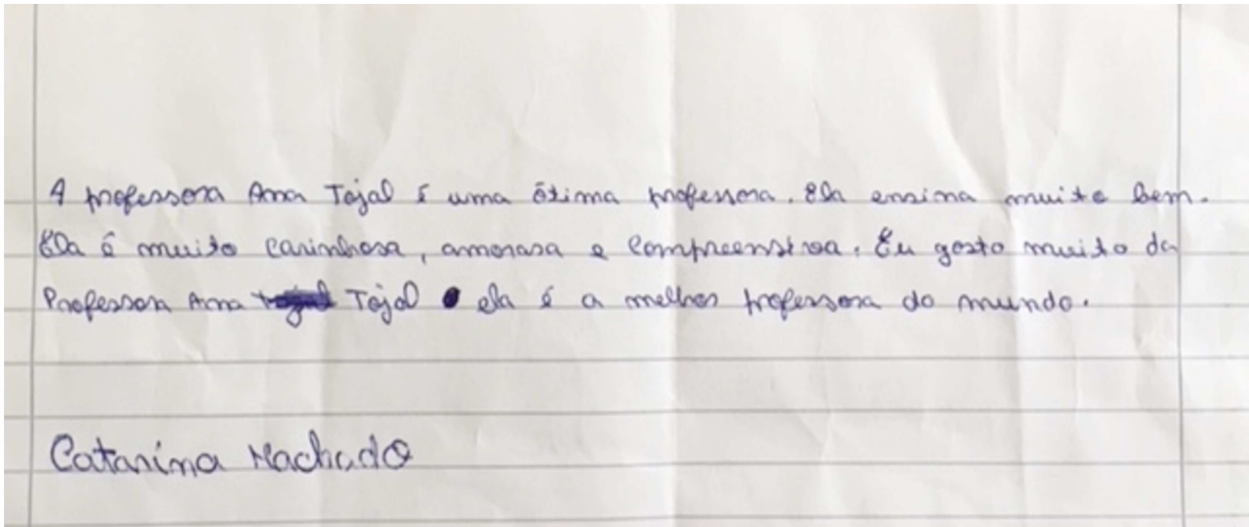 A professora Ana Tojal é uma ótima professora. Ela ensina muito bem.
Ela é muito carinhosa, amorosa e compreensiva. Eu gosto muito da
Professora Ana Tojal ela é a melhor professora do mundo.
Catarina Machado